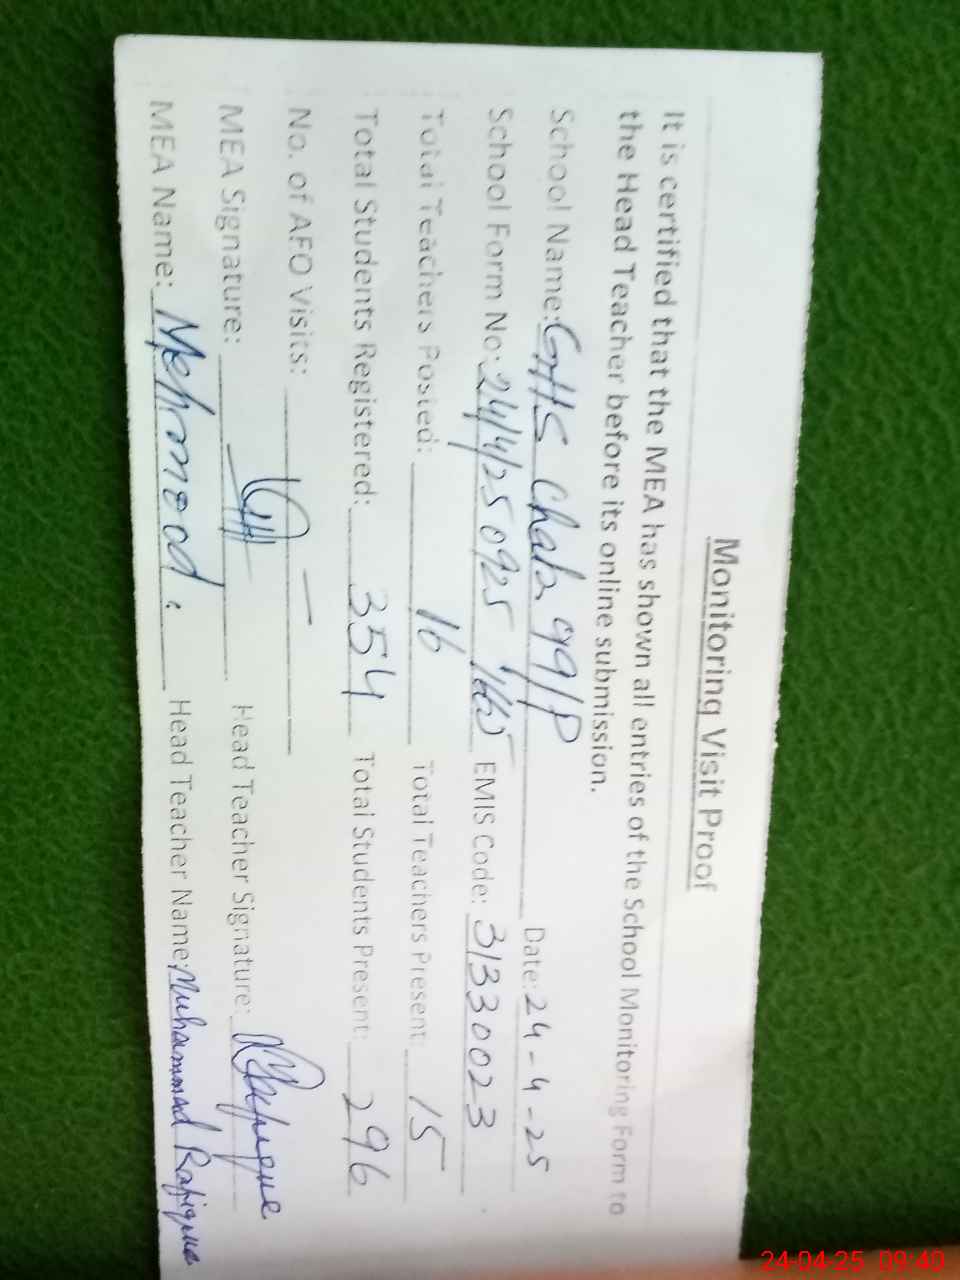 Monitoring Visit Proof
It is certified that the MEA has shown all entries of the School Monitoring Form to
the Head Teacher before its online submission.
School Name: GHS Chak 99/P Date: 24-4-25
School Form No: 24/4/25 0925 EMIS Code: 31330023
Total Teachers Posted: 16 Total Teachers Present: 15
Total Students Registered: 354 Total Students Present: 296
No. of AEO Visits: —
MEA Signature: Head Teacher Signature: Rafique
MEA Name: Mehmood. Head Teacher Name: Muhammad Rafique
24-04-25 09:40